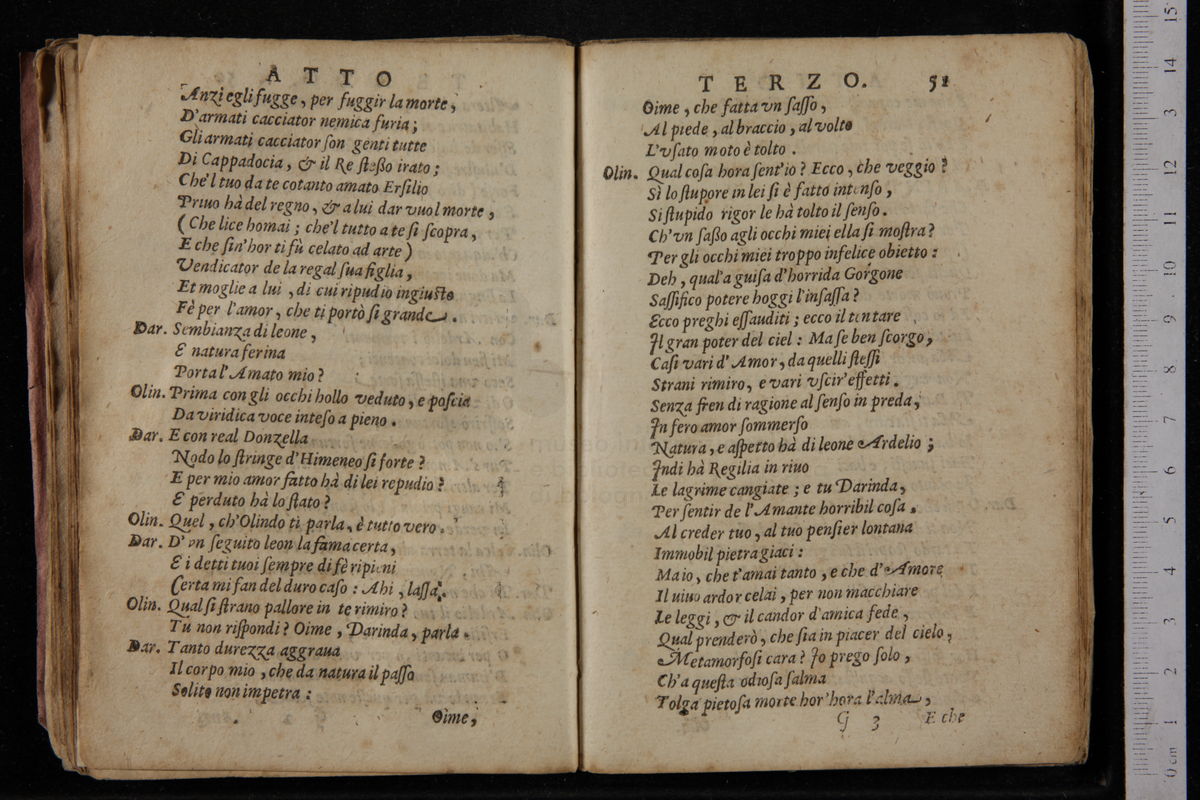 ATTO
Anzi egli fugge, per fuggir la morte,
D'armati cacciator nemica furia;
Gli armati cacciator ſon genti tutte
Di Cappadocia, & il Re ſteßo irato;
Che'l tuo da te cotanto amato Erſilio
Priuo hà del regno, & a lui dar vuol morte,
(Che lice homai; che'l tutto a te ſi ſcopra,
E che ſin'hor ti fù celato ad arte)
Vendicator de la regal ſua figlia,
Et moglie a lui, di cui ripudio ingiuſto
Fè per l'amor, che ti portò ſi grande.
Dar. Sembianza di leone,
E natura ferina
Porta l'Amato mio?
Olin. Prima con gli occhi hollo veduto, e poſcia
Da viridica voce inteſo a pieno.
Dar. E con real Donzella
Nodo lo ſtringe d'Himeneo ſi forte?
E per mio amor fatto hà di lei repudio?
E perduto hà lo ſtato?
Olin. Quel, ch'Olindo ti parla, è tutto vero.
Dar. D'vn ſeguito leon la fama certa,
E i detti tuoi ſempre di fè ripieni
Certa mi fan del duro caſo: Ahi, laſſa.
Olin. Qual ſi ſtrano pallore in te rimiro?
Tu non riſpondi? Oime, Darinda, parla.
Dar. Tanto durezza aggraua
Il corpo mio, che da natura il paſſo
Solito non impetra:
Oime,
TERZO. 51
Oime, che fatta vn ſaſſo,
Al piede, al braccio, al volto
L'vſato moto è tolto.
Olin. Qual coſa hora ſent'io? Ecco, che veggio?
Sì lo ſtupore in lei ſi è fatto intenſo,
Si ſtupido rigor le hà tolto il ſenſo.
Ch'vn ſaßo agli occhi miei ella ſi moſtra?
Per gli occhi miei troppo infelice obietto:
Deh, qual'a guiſa d'horrida Gorgone
Saſſifico potere hoggi l'inſaſſa?
Ecco preghi eſſauditi; ecco il tentare
Il gran poter del ciel: Ma ſe ben ſcorgo,
Caſi vari d'Amor, da quelli ſteſſi
Strani rimiro, e vari vſcir'effetti.
Senza fren di ragione al ſenſo in preda,
In fero amor ſommerſo
Natura, e aſpetto hà di leone Ardelio;
Indi hà Regilia in riuo
Le lagrime cangiate; e tu Darinda,
Per ſentir de l'Amante horribil coſa.
Al creder tuo, al tuo penſier lontana
Immobil pietra giaci:
Ma io, che t'amai tanto, e che d'Amore
Il uiuo ardor celai, per non macchiare
Le leggi, & il candor d'amica fede,
Qual prenderò, che ſia in piacer del cielo,
Metamorfoſi cara? Io prego ſolo,
Ch'a queſta odioſa ſalma
Tolga pietoſa morte hor'hora l'alma,
G 3 E che